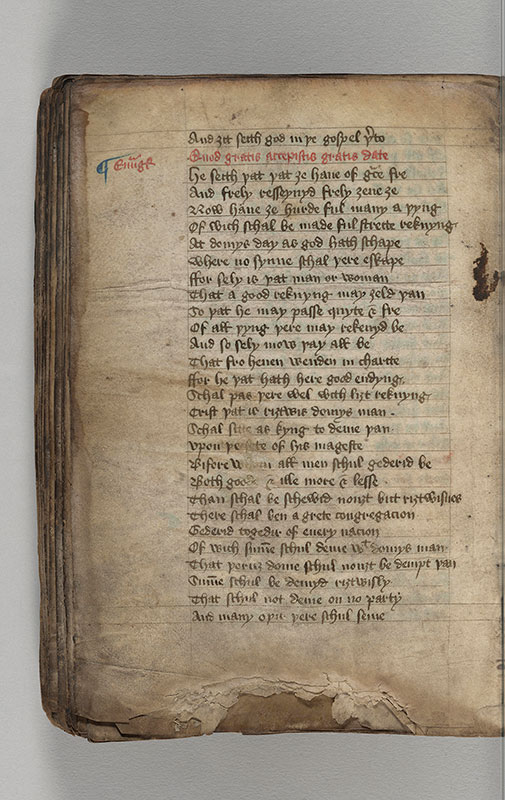 And ȝit seith god in þe gospel þerto
Quod gratis accepistis gratis date
¶ Euangelium
He seith þat þat ȝe haue of grace fre
And frely resseyuyd frely ȝeue ȝe
Now haue ȝe hurde ful many a þyng
Of wich schal be made ful streite reknyng
At domys day as god hath schape
Where no synne schal þere eskape
ffor sely is þat man or woman
That a good reknyng may ȝeld þan
So þat he may passe quyte & fre
Of all þyng þere may rekenyd be
And so sely mow þay all be
That fro heuen wenden in charite
ffor he þat hath here good endyng
Schal pas þere wel with liȝt reknyng
Crist þat is riȝtwis domys man
Schal sitte as kyng to deme þan
Vpon þe sete of his mageste
Bifore all men schul gederid be
Both goode & ille more & lesse
Than schal be schewid nouȝt but riȝtwisnes
There schal ben a grete congregacion
Gederid togedir of euery nacion
Of wich summe schul deme wt domys man
That þeruȝ dome schul nouȝt be dempt þan
Summe schul be demyd riȝtwisly
That schul not deme on no party
And many oþir þere schul seme